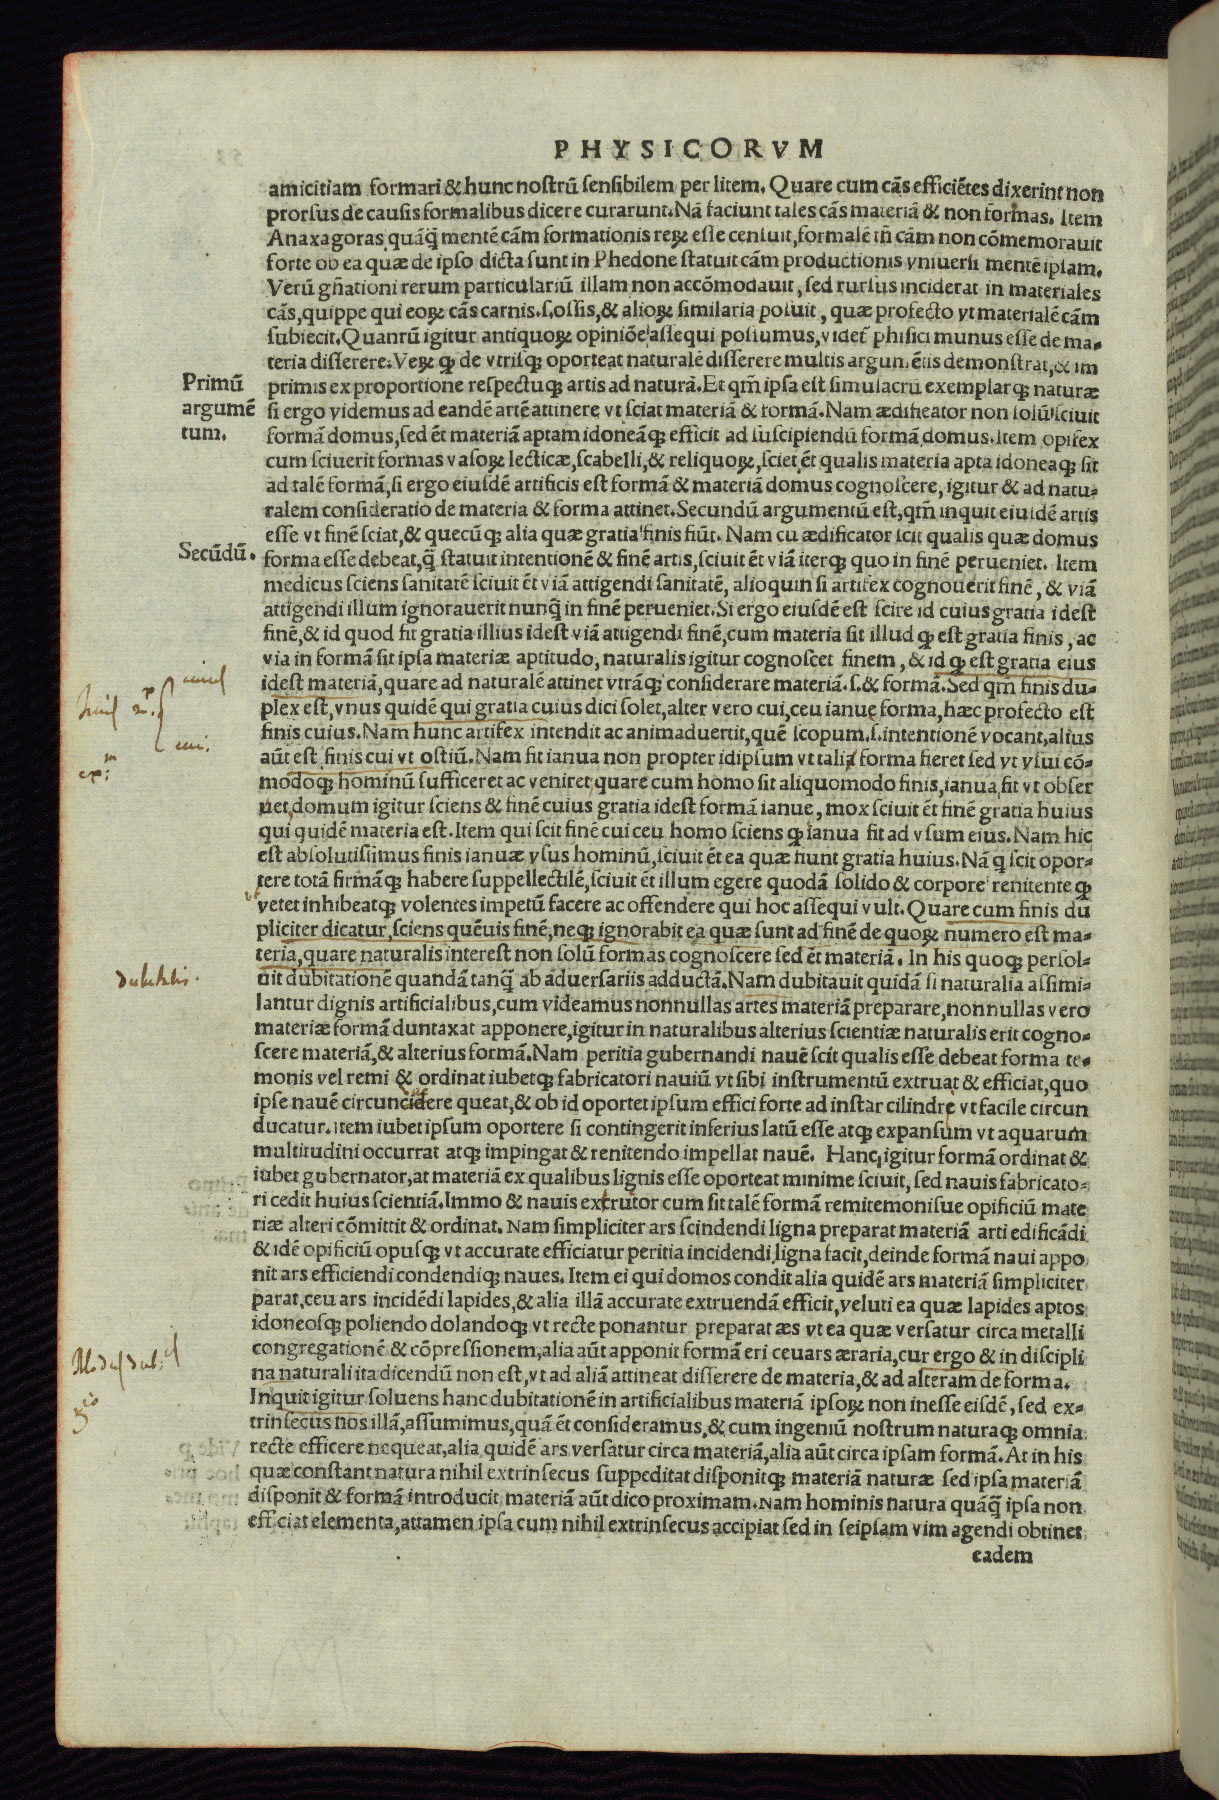 PHYSICORVM
amicitiam formari & hunc nostrũ sensibilem per litem. Quare cum cãs efficiẽtes dixerint non
prorsus de causis formalibus dicere curarunt. Nã faciunt tales cãs materiã & non formas. Item
Anaxagoras quãq̃ mentẽ cãm formationis reꝝ esse censuit, formalẽ tñ cãm non cõmemorauit
forte ob ea quæ de ipso dicta sunt in Phedone statuit cãm productionis vniuersi mentẽ ipsam.
Verũ gñationi rerum particulariũ illam non accõmodauit, sed rursus inciderat in materiales
cãs, quippe qui eoꝝ cãs carnis .s. ossis, & alioꝝ similaria posuit, quæ profecto vt materialẽ cãm
subiecit. Quanrũ igitur antiquoꝝ opiniõe assequi possumus, videt̃ phisici munus esse de ma-
teria disserere. Veꝝ ꝙ de vtrisq; oporteat naturalẽ disserere multis argumẽtis demonstrat, & im
Primũ
argumẽ
tum.
primis ex proportione respectuq; artis ad naturã. Et qm̃ ipsa est simulacrũ exemplarq; naturæ
si ergo videmus ad eandẽ artẽ attinere vt sciat materiã & formã. Nam ædificator non solũ sciuit
formã domus, sed ẽt materiã aptam idoneãq; efficit ad suscipiendũ formã domus. Item opifex
cum sciuerit formas vasoꝝ lecticæ, scabelli, & reliquoꝝ, sciet ẽt qualis materia apta idoneaq; sit
ad talẽ formã, si ergo eiusdẽ artificis est formã & materiã domus cognoscere, igitur & ad natu-
ralem consideratio de materia & forma attinet. Secundũ argumentũ est, qm̃ inquit eiusdẽ artis
esse vt finẽ sciat, & quecũq; alia quæ gratia finis fiũt. Nam cu ædificator scit qualis quæ domus
Secũdũ.
forma esse debeat, q̃ statuit intentionẽ & finẽ artis, sciuit ẽt viã iterq; quo in finẽ perueniet. Item
medicus sciens sanitatẽ sciuit ẽt viã attigendi sanitatẽ, alioquin si artifex cognouerit finẽ, & viã
attigendi illum ignorauerit nunq̃ in finẽ perueniet. Si ergo eiusdẽ est scire id cuius gratia idest
finẽ, & id quod fit gratia illius idest viã attigendi finẽ, cum materia sit illud ꝙ est gratia finis, ac
via in formã sit ipsa materiæ aptitudo, naturalis igitur cognoscet finem, & id ꝙ est gratia eius
idest materiã, quare ad naturalẽ attinet vtrãq; considerare materiã .s. & formã. Sed qm̃ finis du-
plex est, vnus quidẽ qui gratia cuius dici solet, alter vero cui, ceu ianuę forma, hæc profecto est
finis cuius. Nam hunc artifex intendit ac animaduertit, quẽ scopum .s. intentionẽ vocant, alius
cui.
aũt est finis cui vt ostiũ. Nam fit ianua non propter idipsum vt talis forma fieret sed vt vsui cõ-
modoq; hominũ sufficeret ac veniret, quare cum homo sit aliquomodo finis, ianua fit vt obser
uet, domum igitur sciens & finẽ cuius gratia idest formã ianuę, mox sciuit ẽt finẽ gratia huius
qui quidẽ materia est. Item qui scit finẽ cui ceu homo sciens ꝙ ianua fit ad vsum eius. Nam hic
est absolutissimus finis ianuæ vsus hominũ, sciuit ẽt ea quæ fiunt gratia huius. Nã q̃ scit opor-
tere totã firmãq; habere suppellectilẽ, sciuit ẽt illum egere quodã solido & corpore renitente ꝙ
vetet inhibeatq; volentes impetũ facere ac offendere qui hoc assequi vult. Quare cum finis du
pliciter dicatur, sciens quẽuis finẽ, neq; ignorabit ea quæ sunt ad finẽ de quoꝝ numero est ma-
teria, quare naturalis interest non solũ formas cognoscere sed ẽt materiã. In his quoq; persol-
uit dubitationẽ quandã tanq̃ ab aduersariis adductã. Nam dubitauit quidã si naturalia assimi-
lantur dignis artificialibus, cum videamus nonnullas artes materiã preparare, nonnullas vero
materiæ formã duntaxat apponere, igitur in naturalibus alterius scientiæ naturalis erit cogno-
scere materiã, & alterius formã. Nam peritia gubernandi nauẽ scit qualis esse debeat forma te-
monis vel remi & ordinat iubetq; fabricatori nauiũ vt sibi instrumentũ extruat & efficiat, quo
ipse nauẽ circuncidere queat, & ob id oportet ipsum effici forte ad instar cilindrę vt facile circun
ducatur. item iubet ipsum oportere si contingerit inferius latũ esse atq; expansum vt aquarum
multitudini occurrat atq; impingat & renitendo impellat nauẽ. Hanc igitur formã ordinat &
iubet gubernator, at materiã ex qualibus lignis esse oporteat minime sciuit, sed nauis fabricato-
ri cedit huius scientiã. Immo & nauis extrutor cum sit talẽ formã remitemonisue opificiũ mate
riæ alteri cõmittit & ordinat. Nam simpliciter ars scindendi ligna preparat materiã arti edificãdi
& idẽ opificiũ opusq; vt accurate efficiatur peritia incidendi ligna facit, deinde formã naui appo
nit ars efficiendi condendiq; naues. Item ei qui domos condit alia quidẽ ars materiã simpliciter
parat, ceu ars incidẽdi lapides, & alia illã accurate extruendã efficit, veluti ea quæ lapides aptos
idoneosq; poliendo dolandoq; vt recte ponantur preparat æs vt ea quæ versatur circa metalli
congregationẽ & cõpressionem, alia aũt apponit formã eri ceu ars æraria, cur ergo & in discipli
na naturali ita dicendũ non est, vt ad aliã attineat disserere de materia, & ad alteram de forma.
Inquit igitur soluens hanc dubitationẽ in artificialibus materiã ipsoꝝ non inesse eisdẽ, sed ex-
trinsecus nos illã, assumimus, quã ẽt consideramus, & cum ingeniũ nostrum naturaq; omnia
recte efficere nequeat, alia quidẽ ars versatur circa materiã, alia aũt circa ipsam formã. At in his
quæ constant natura nihil extrinsecus suppeditat disponitq; materiã naturæ sed ipsa materiã
disponit & formã introducit, materiã aũt dico proximam. Nam hominis natura quãq̃ ipsa non
efficiat elementa, attamen ipsa cum nihil extrinsecus accipiat sed in seipsam vim agendi obtinet
eadem